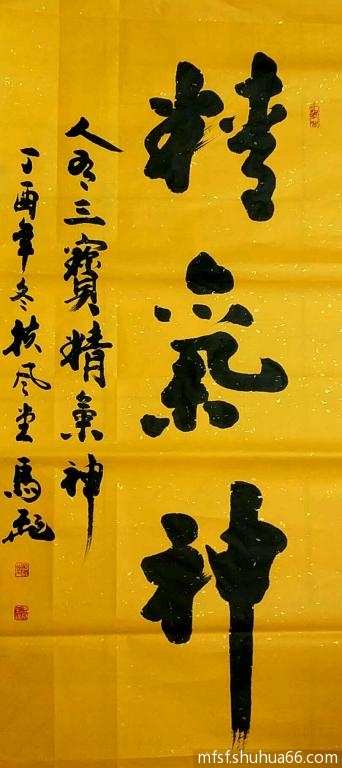 精氣神
人有三寳精氣神
丁酉年冬扶風堂馬彪
mfsf.shuhua66.com